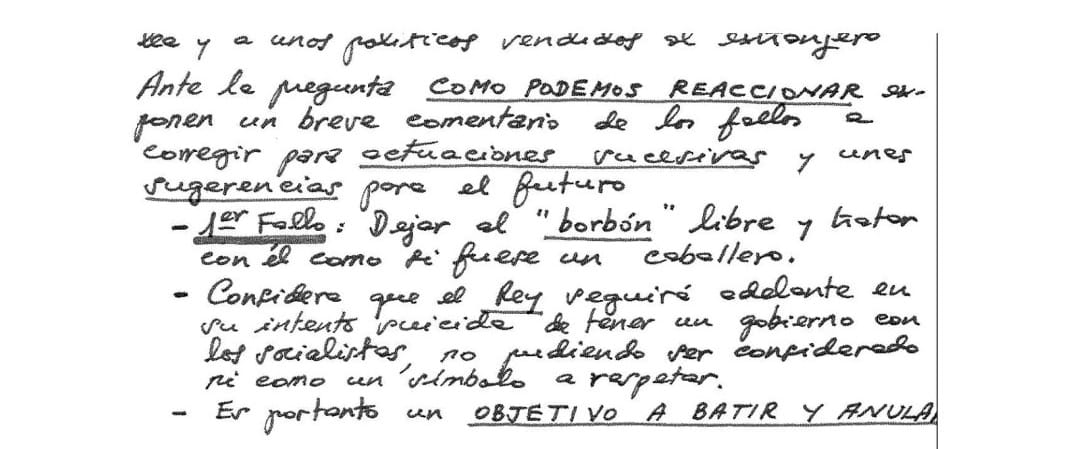 y a unos políticos vendidos al extranjero
Ante la pregunta COMO PODEMOS REACCIONAR ex-
ponen un breve comentario de los fallos a
corregir para actuaciones sucesivas y unas
sugerencias para el futuro
- 1er Fallo: Dejar al "borbón" libre y tratar
con él como si fuese un caballero.
- Considera que el Rey seguirá adelante en
su intento suicida de tener un gobierno con
los socialistas, no pudiendo ser considerado
ni como un símbolo a respetar.
- Es portanto un OBJETIVO A BATIR Y ANULA